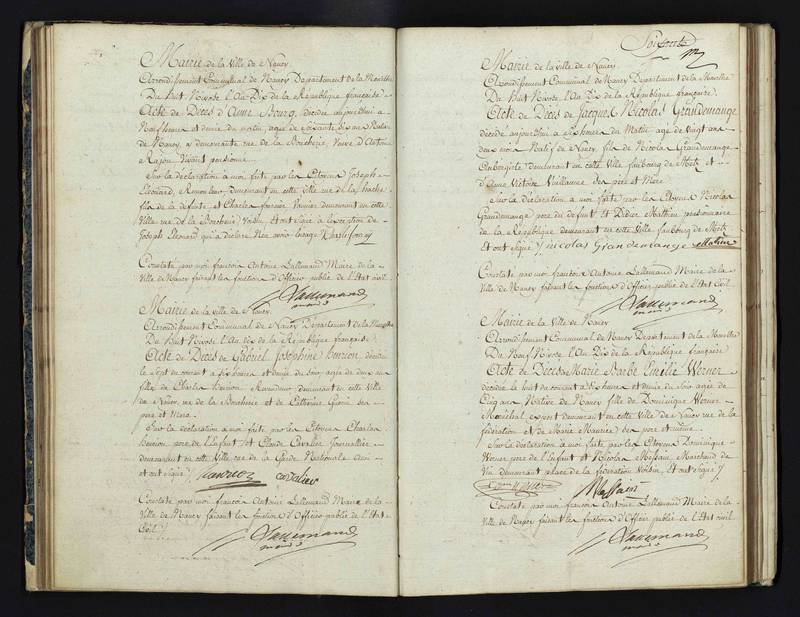 Mairie de la Ville de Nancy
Arrondissement Communal de Nancy Département de la Meurthe
Du huit Nivose l'An Dix de la République française
Acte de Décès d'Anne Bourg, décédée aujourd'hui a
Neuf heures et demie du matin, agée de soixante dix ans Native
de Nancy, y demeurante rue de la Boucherie, Veuve d'Antoine
Vivant
Sur la déclaration à moi faite par les Citoyens Joseph
Léonard, demeurant en cette Ville rue de la hache
fils de la défunte et Charles fournier Vanier demeurant en cette
Ville rue de la Boucherie Voisin, Et ont signé à l'exception de
Joseph Léonard qui a déclaré
Constaté par moi françois Antoine Lallemand Maire de la
Ville de Nancy faisant les fonctions d'Officier public de l'Etat civil
Lallemand
maire
Mairie de la ville de Nancy.
Arrondissement Communal de Nancy Département de la Meurthe
Du huit Nivose l'An dix de la République française
Acte de Décès de Gabriel Joséphine décédée
le Sept du courant a six heures et demie du soir, agée de deux ans
fille de Charles demeurant en cette Ville
de Nancy, rue de la Boucherie et de Catherine ses
père et mère.
Sur la déclaration à moi faite par les Citoyens Charles
père de l'enfant et Claude Cavalier Journallier
demeurant en cette Ville rue de la Garde Nationale ami
et ont signé
cavalier
Constaté par moi françois Antoine Lallemand Maire de la
Ville de Nancy faisant les fonctions d'Officier public de l'Etat
Civil
Lallemand
maire
Mairie de la ville de Nancy
Arrondissement Communal de Nancy Département de la Meurthe
Du huit Nivose l'An Dix de la République française
Acte de Décès de Jacques Nicolas Grandemange
décédé aujourd'hui a six heures du Matin agé de Vingt ans
deux mois Natif de Nancy, fils de Nicolas Grandemange
Aubergiste demeurant en cette Ville faubourg de Metz et
d'Anne Victoire Vuillaume Ses père et Mère
Sur la déclaration a moi faite par les Citoyens Nicolas
Grandemange père du défunt et Didier Mathieu pensionnaire
de la République demeurant en cette Ville faubourg de Metz
Et ont signé nicolas Grandemange
Constaté par moi françois Antoine Lallemand Maire de la
Ville de Nancy faisant les fonctions d'Officier public de l'Etat Civil
Lallemand
maire
Mairie de la Ville de Nancy
Arrondissement Communal de Nancy Département de la Meurthe
Du Neuf Nivose l'An Dix de la République française
Acte de Décès de Marie Barbe Emélie Werner
décédée le huit du courant a dix heures et demie du Soir agée de
Cinq ans Native de Nancy fille de Dominique Werner
Maréchal expert demeurant en cette Ville de Nancy rue de la
fédération et de Marie ses père et mère.
Sur la déclaration à moi faite par les Citoyens Dominique
Werner père de l'enfant et Nicolas Messain Marchand de
Vin demeurant place de la fédération Voisin, Et ont signé
Messain
Constaté par moi françois Antoine Lallemand Maire de la
Ville de Nancy faisant les fonctions d'Officier public de l'Etat civil
Lallemand
maire